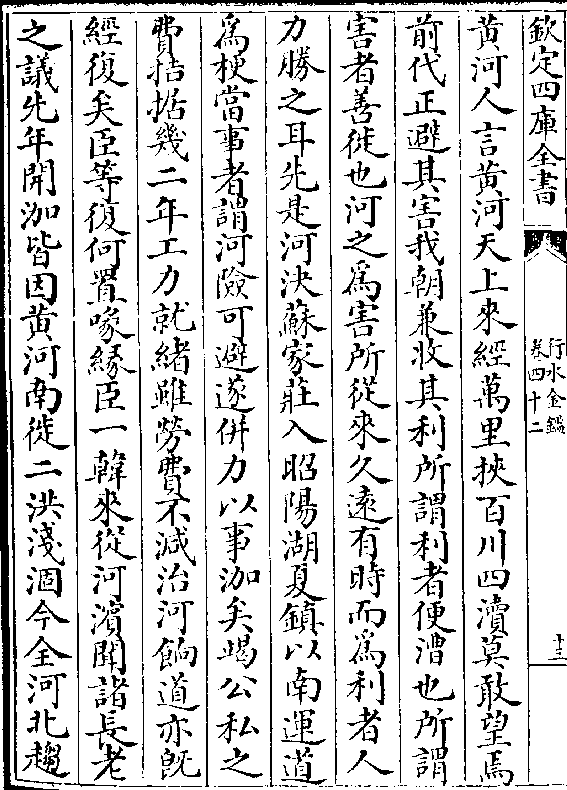 欽定四庫全書
行水金鑑
卷四十二
十三
黄河人言黄河天上來經萬里挾百川四瀆莫敢望焉
前代正避其害我朝兼收其利所謂利者便漕也所謂
害者善徙也河之為害所從來久遠有時而為利者人
力勝之耳先是河決蘇家莊入昭陽湖夏鎮以南運道
為梗當事者謂河險可避遂併力以事泇矣竭公私之
費拮据幾二年工力就緒雖勞費不減治河餉道亦既
經復矣臣等復何置喙緣臣一韓來從河濱聞諸長老
之議先年開泇皆因黄河南徙二洪淺涸今全河北趨